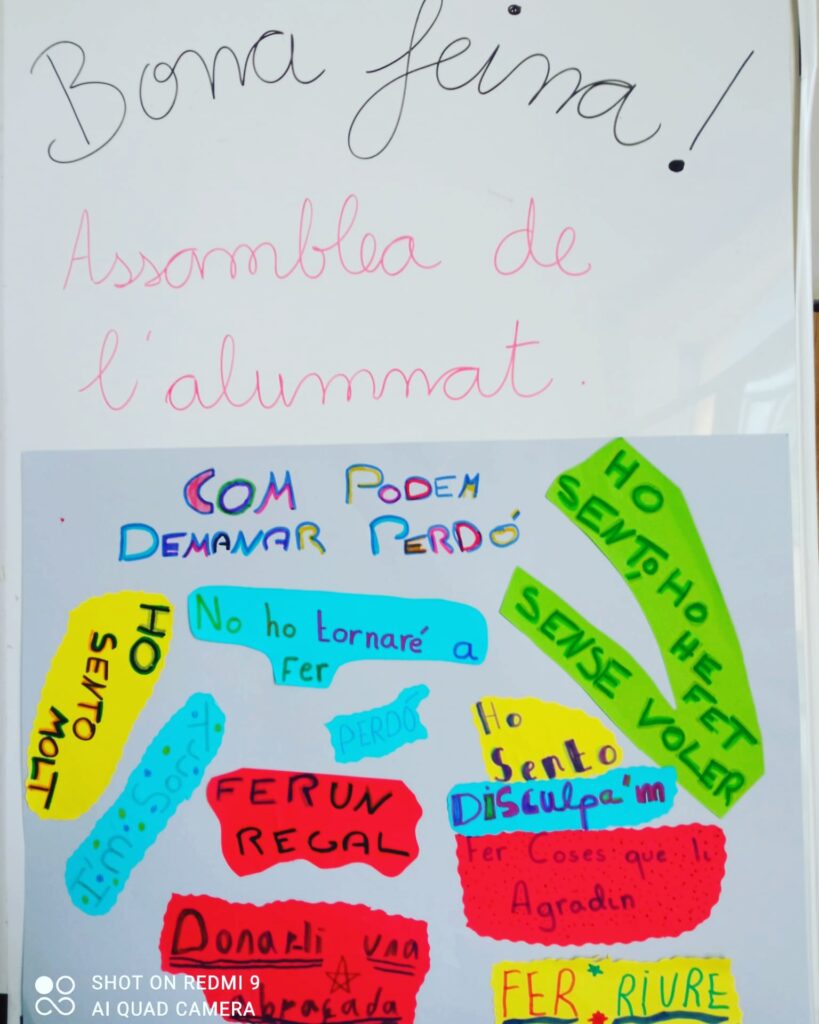 Bona feina!
Assamblea de
l'alumnat.
COM PODEM
DEMANAR PERDÓ
HO
SENTO, HO
HE
FET
SENSE VOLER
No ho tornaré a
fer
HO
SENTO
MOLT
I'm Sorry
PERDÓ
Ho
Sento
DISCulpa'm
FER UN
REGAL
Fer Coses que li
Agradin
Donarli una
abraçada
FER RIURE
SHOT ON REDMI 9
AI QUAD CAMERA